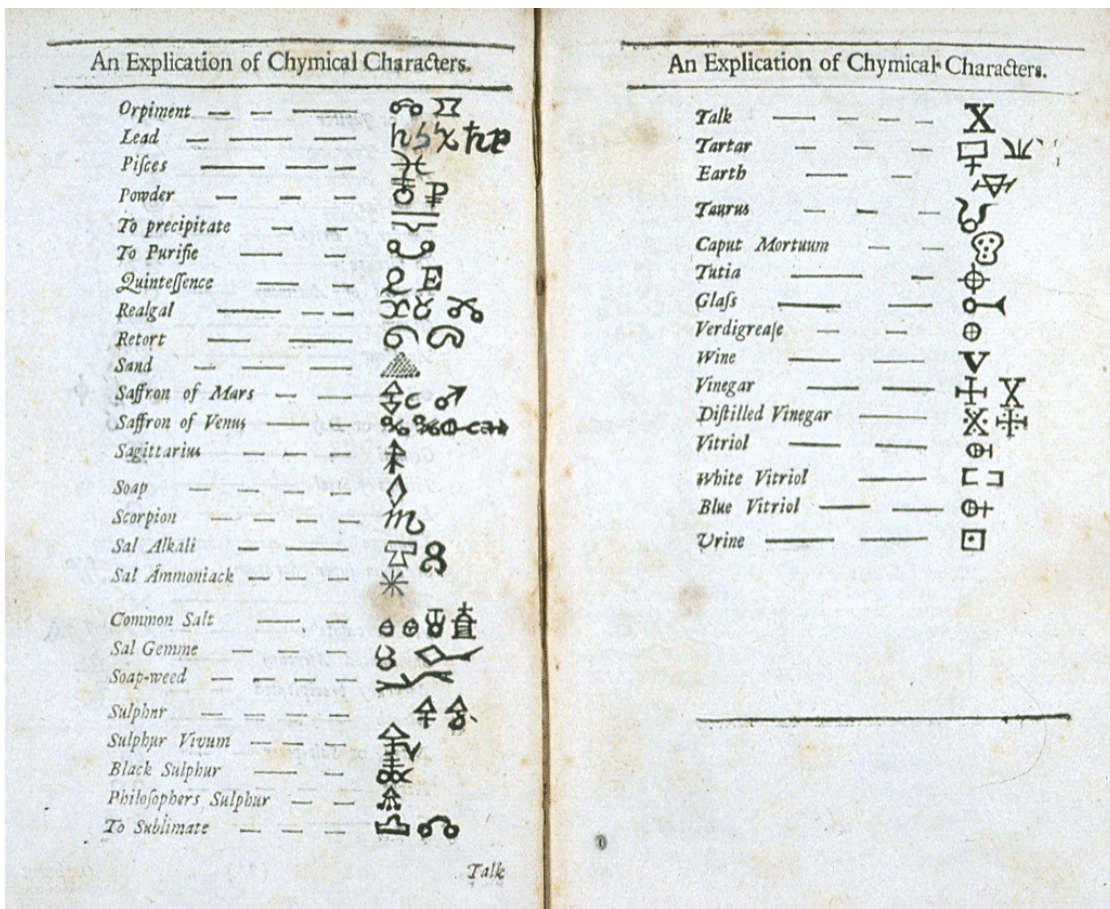 An Explication of Chymical Characters.
Orpiment
Lead
Piſces
Powder
To precipitate
To Purifie
Quinteſſence
Realgal
Retort
Sand
Saffron of Mars
Saffron of Venus
Sagittarius
Soap
Scorpion
Sal Alkali
Sal Ammoniack
Common Salt
Sal Gemme
Soap-weed
Sulphur
Sulphur Vivum
Black Sulphur
Philoſophers Sulphur
To Sublimate
Talk
An Explication of Chymical Characters.
Talk
Tartar
Earth
Taurus
Caput Mortuum
Tutia
Glaſs
Verdigreaſe
Wine
Vinegar
Diſtilled Vinegar
Vitriol
White Vitriol
Blue Vitriol
Urine